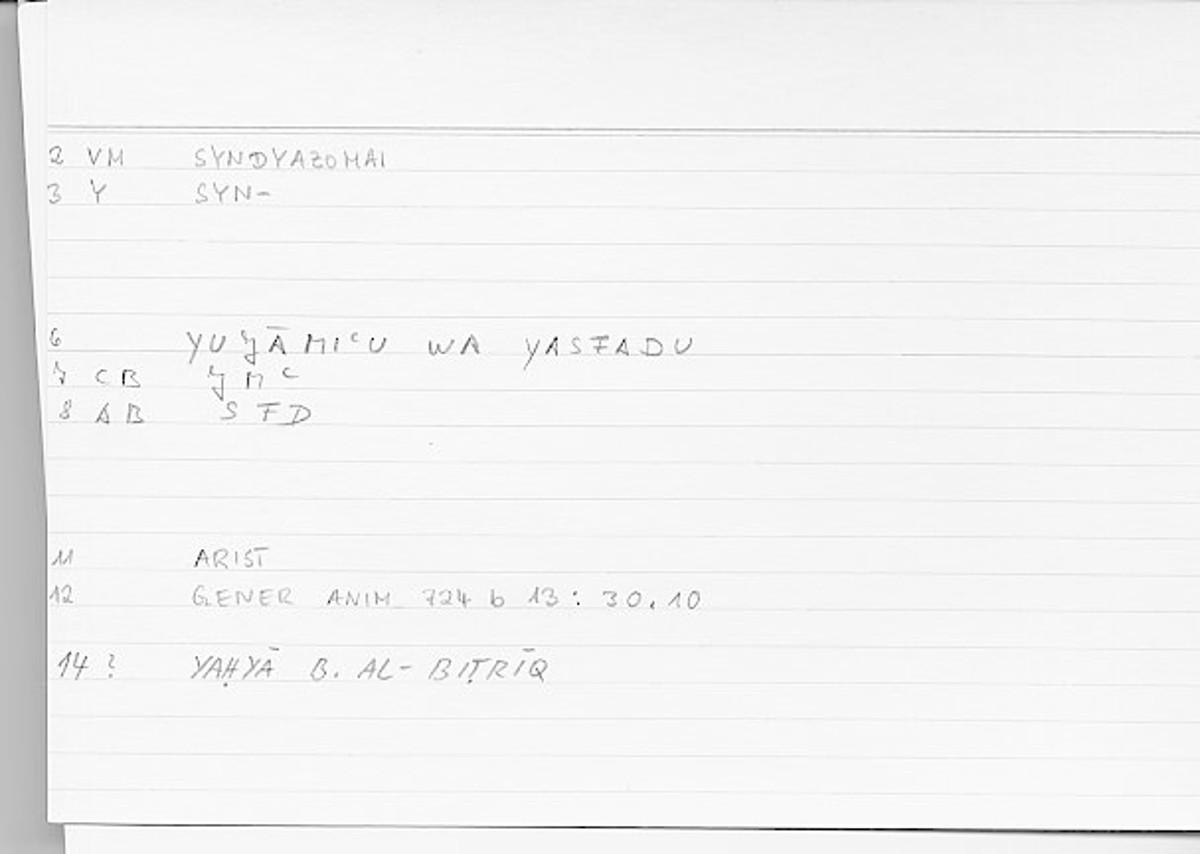 2 VM SYNDYAZOMAI
3 Y SYN-
6 YUǦĀMIᶜU WA YASFADU
7 CB Ǧ M ᶜ
8 AB S F D
11 ARIST
12 GENER ANIM 724 b 13 : 30.10
14 ? YAḤYĀ B. AL-BIṬRĪQ